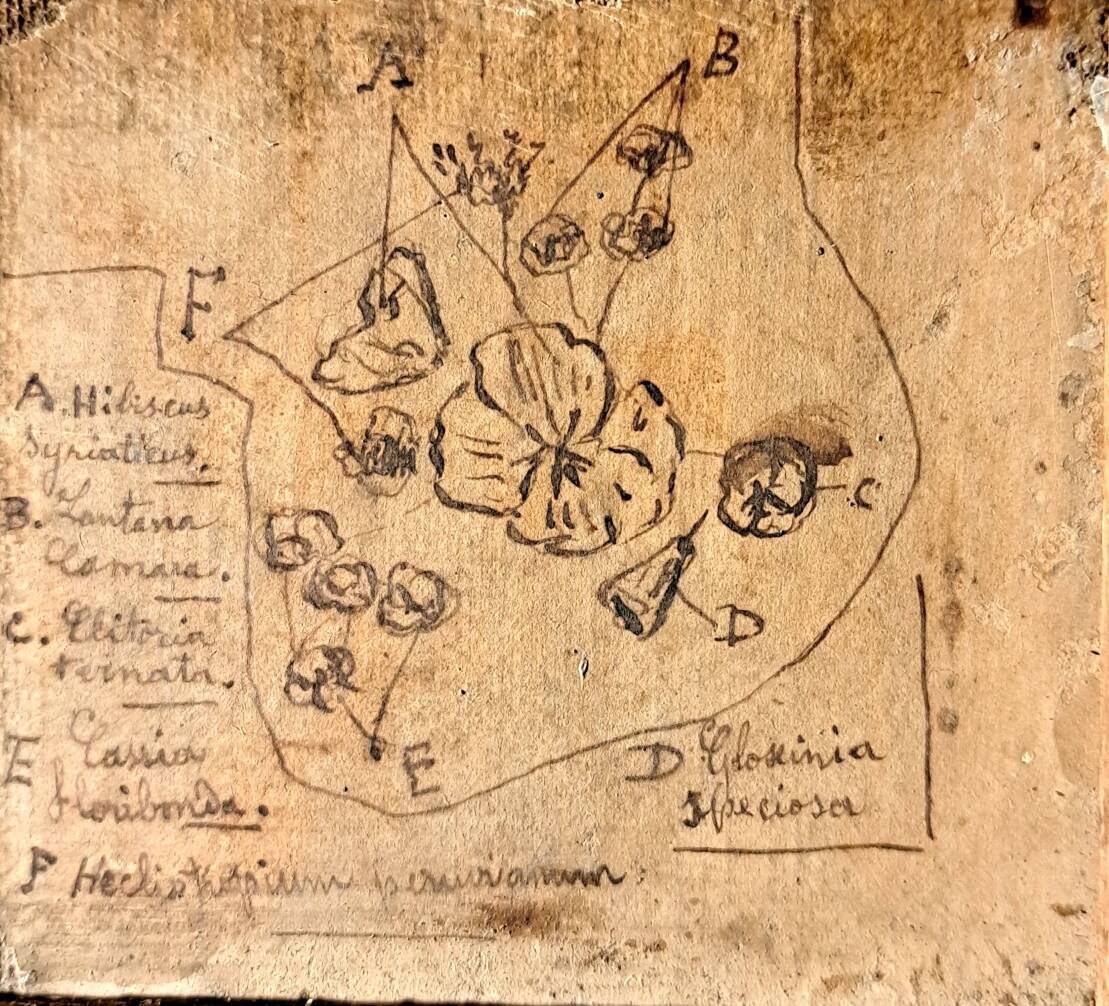 A
B
F
C
D
E
A. Hibiscus
Syriaticus.
B. Lantana
Camara.
C. Clitoria
ternata.
E Cassia
floribonda.
D Gloxinia
speciosa
F Heliotropium peruvianum